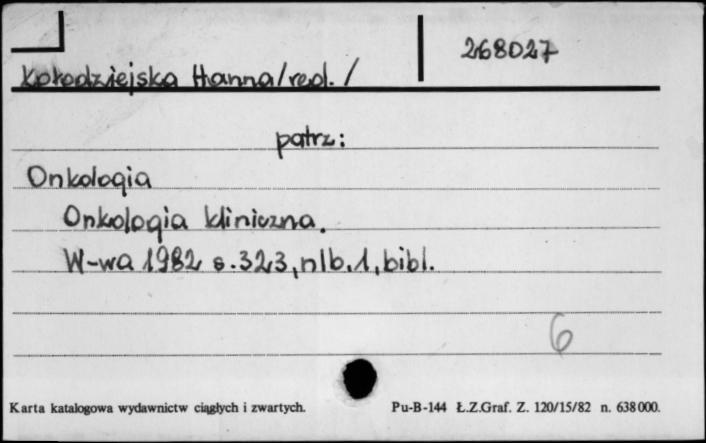 268027
Kołodziejska Hanna/red./
patrz:
Onkologia
Onkologia kliniczna.
W-wa 1982 s.323, nlb.1, bibl.
6
Karta katalogowa wydawnictw ciągłych i zwartych. Pu-B-144 Ł.Z.Graf. Z. 120/15/82 n. 638000.